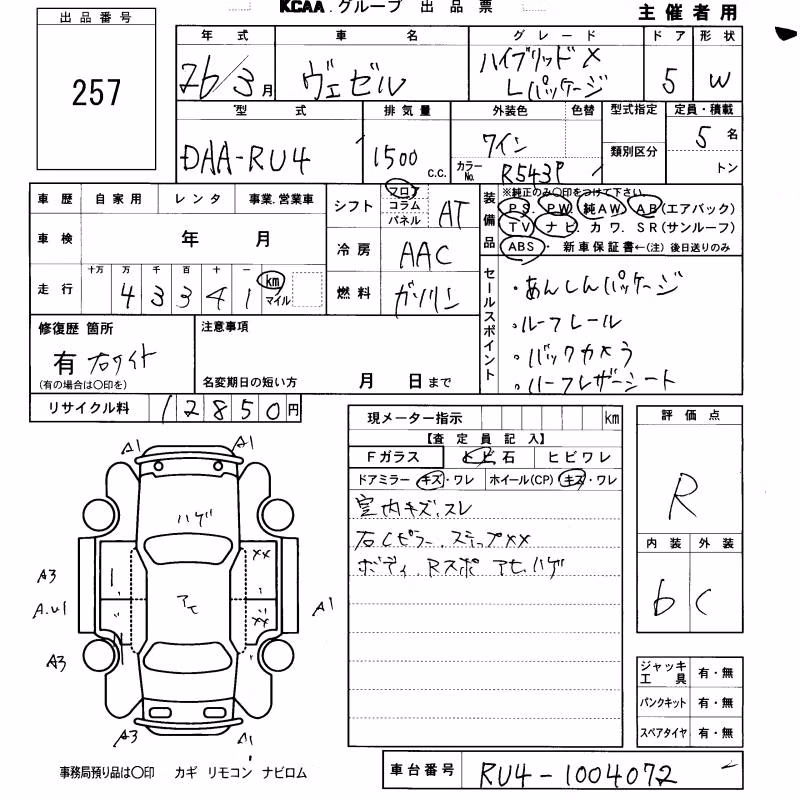 KCAA.グループ 出品票
主催者用
出品番号
257
年式 車名 グレード ドア 形状
26/3月 ヴェゼル ハイブリッドX Lパッケージ 5 W
型式 排気量 外装色 色替 型式指定 定員・積載
DAA-RU4 1500 c.c. ワイン 類別区分 5名
カラーNo. R543P トン
車歴 自家用 レンタ 事業.営業車
シフト フロア コラム パネル AT
装備品 ※純正のみ○印をつけて下さい。
PS. PW. 純AW. AB(エアバック)
TV ナビ. カワ. SR(サンルーフ)
ABS・ 新車保証書←(注) 後日送りのみ
車検 年 月
冷房 AAC
走行 十万 万 千 百 十 一
43341 km マイル
燃料 ガソリン
セールスポイント
・あんしんパッケージ
・ルーフレール
・バックカメラ
・ハーフレザーシート
修復歴 箇所
有 右ワイト
(有の場合は○印を)
注意事項
名変期日の短い方 月 日まで
リサイクル料 12850円
現メーター指示 km
【査定員記入】
Fガラス トビ石 ヒビワレ
ドアミラー キズ・ワレ ホイール(CP) キズ・ワレ
室内キズ、スレ
右Cピラー、ステップXX
ボディ、Rスポ アセ、ハゲ
評価点
R
内装 外装
6 C
A1 A1
ハゲ
XX
A3
A.U1
アセ
XX
A1
A3
A3 A1
ジャッキ工具 有・無
パンクキット 有・無
スペアタイヤ 有・無
事務局預り品は○印 カギ リモコン ナビロム
車台番号 RU4-1004072